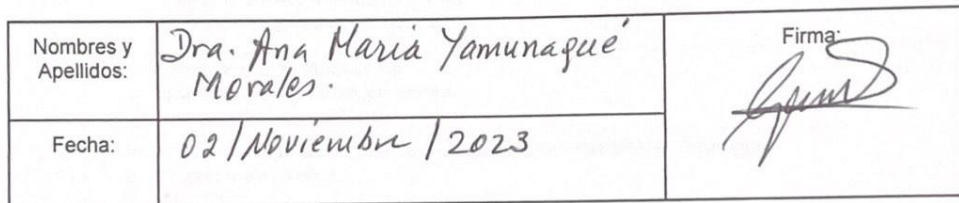 Nombres y
Apellidos:
Dra. Ana Maria Yamunaqué
Morales.
Firma:
Fecha:
02/Noviembre/2023